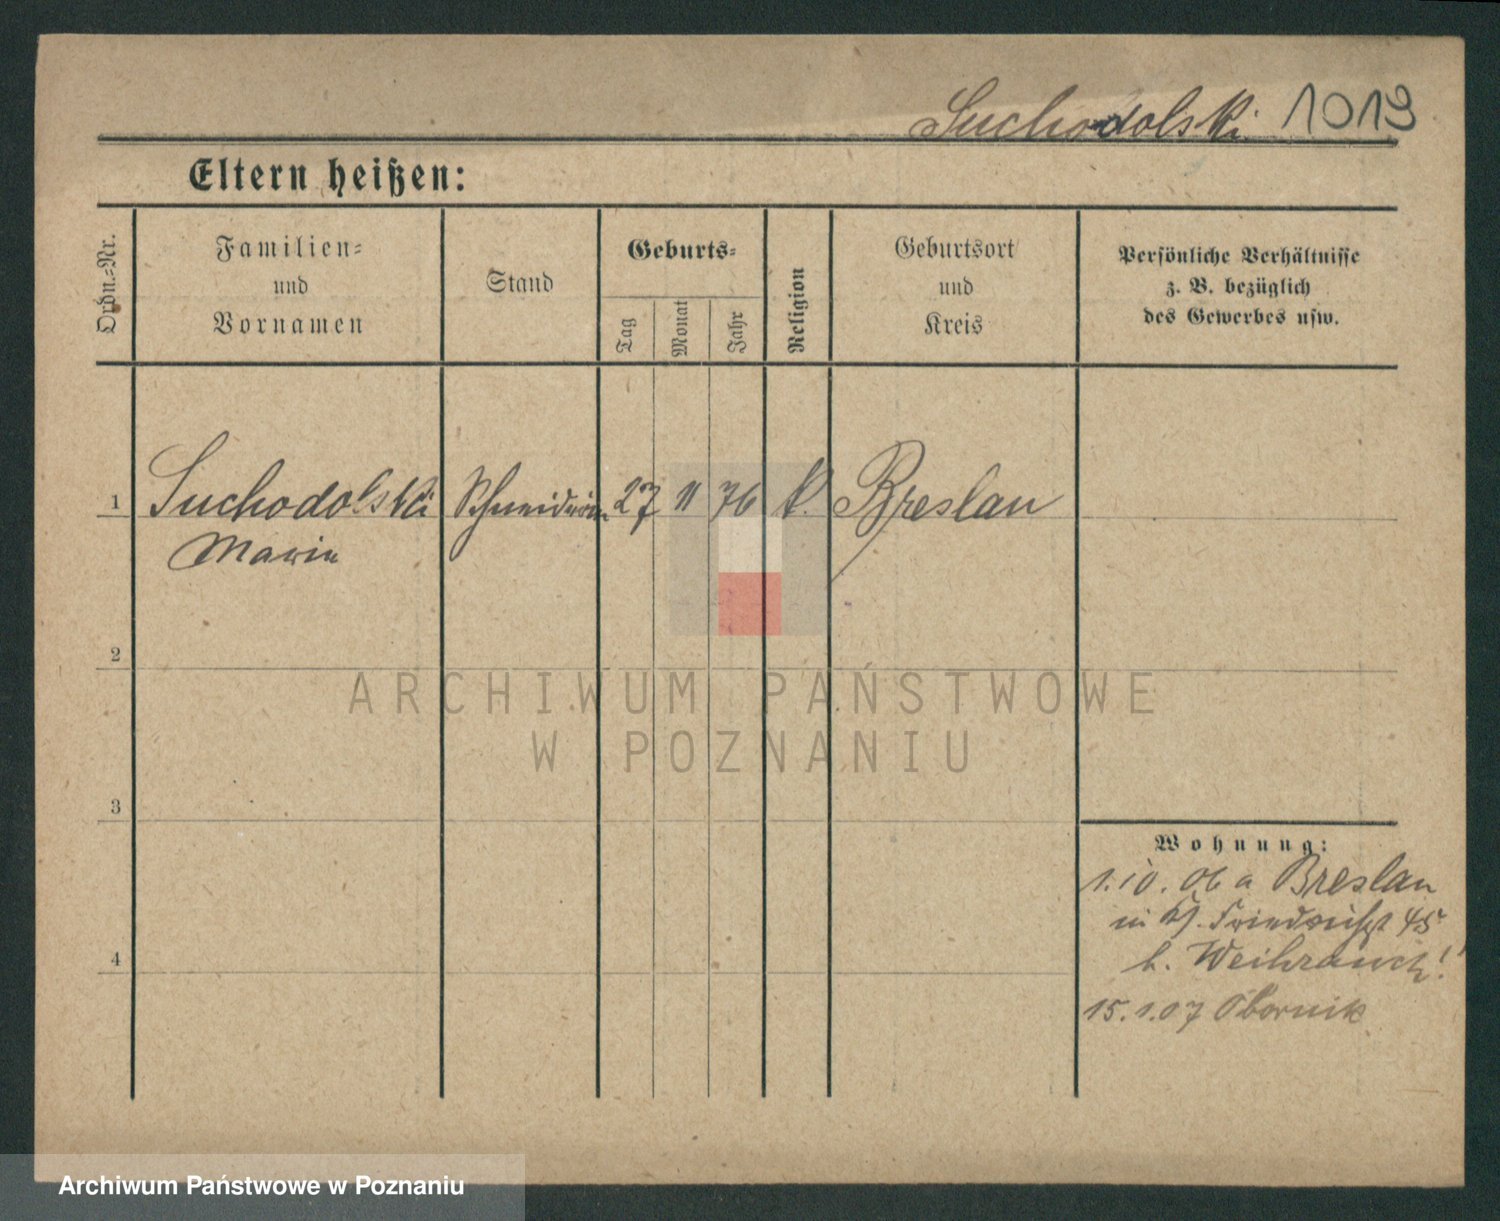 Suchodolski 1019
Eltern heißen:
Ordn.-Nr.
Familien-
und
Vornamen
Stand
Geburts-
Tag
Monat
Jahr
Religion
Geburtsort
und
Kreis
Persönliche Verhältnisse
z. B. bezüglich
des Gewerbes usw.
1 Suchodolski Schneiderin 27 11 76 k. Breslau
Maria
2
3
4
Wohnung:
1.10.06 a Breslau
in Friedrichst 45
b. Weihrauch!
15.1.07 Obornik
ARCHIWUM PAŃSTWOWE
W POZNANIU
Archiwum Państwowe w Poznaniu